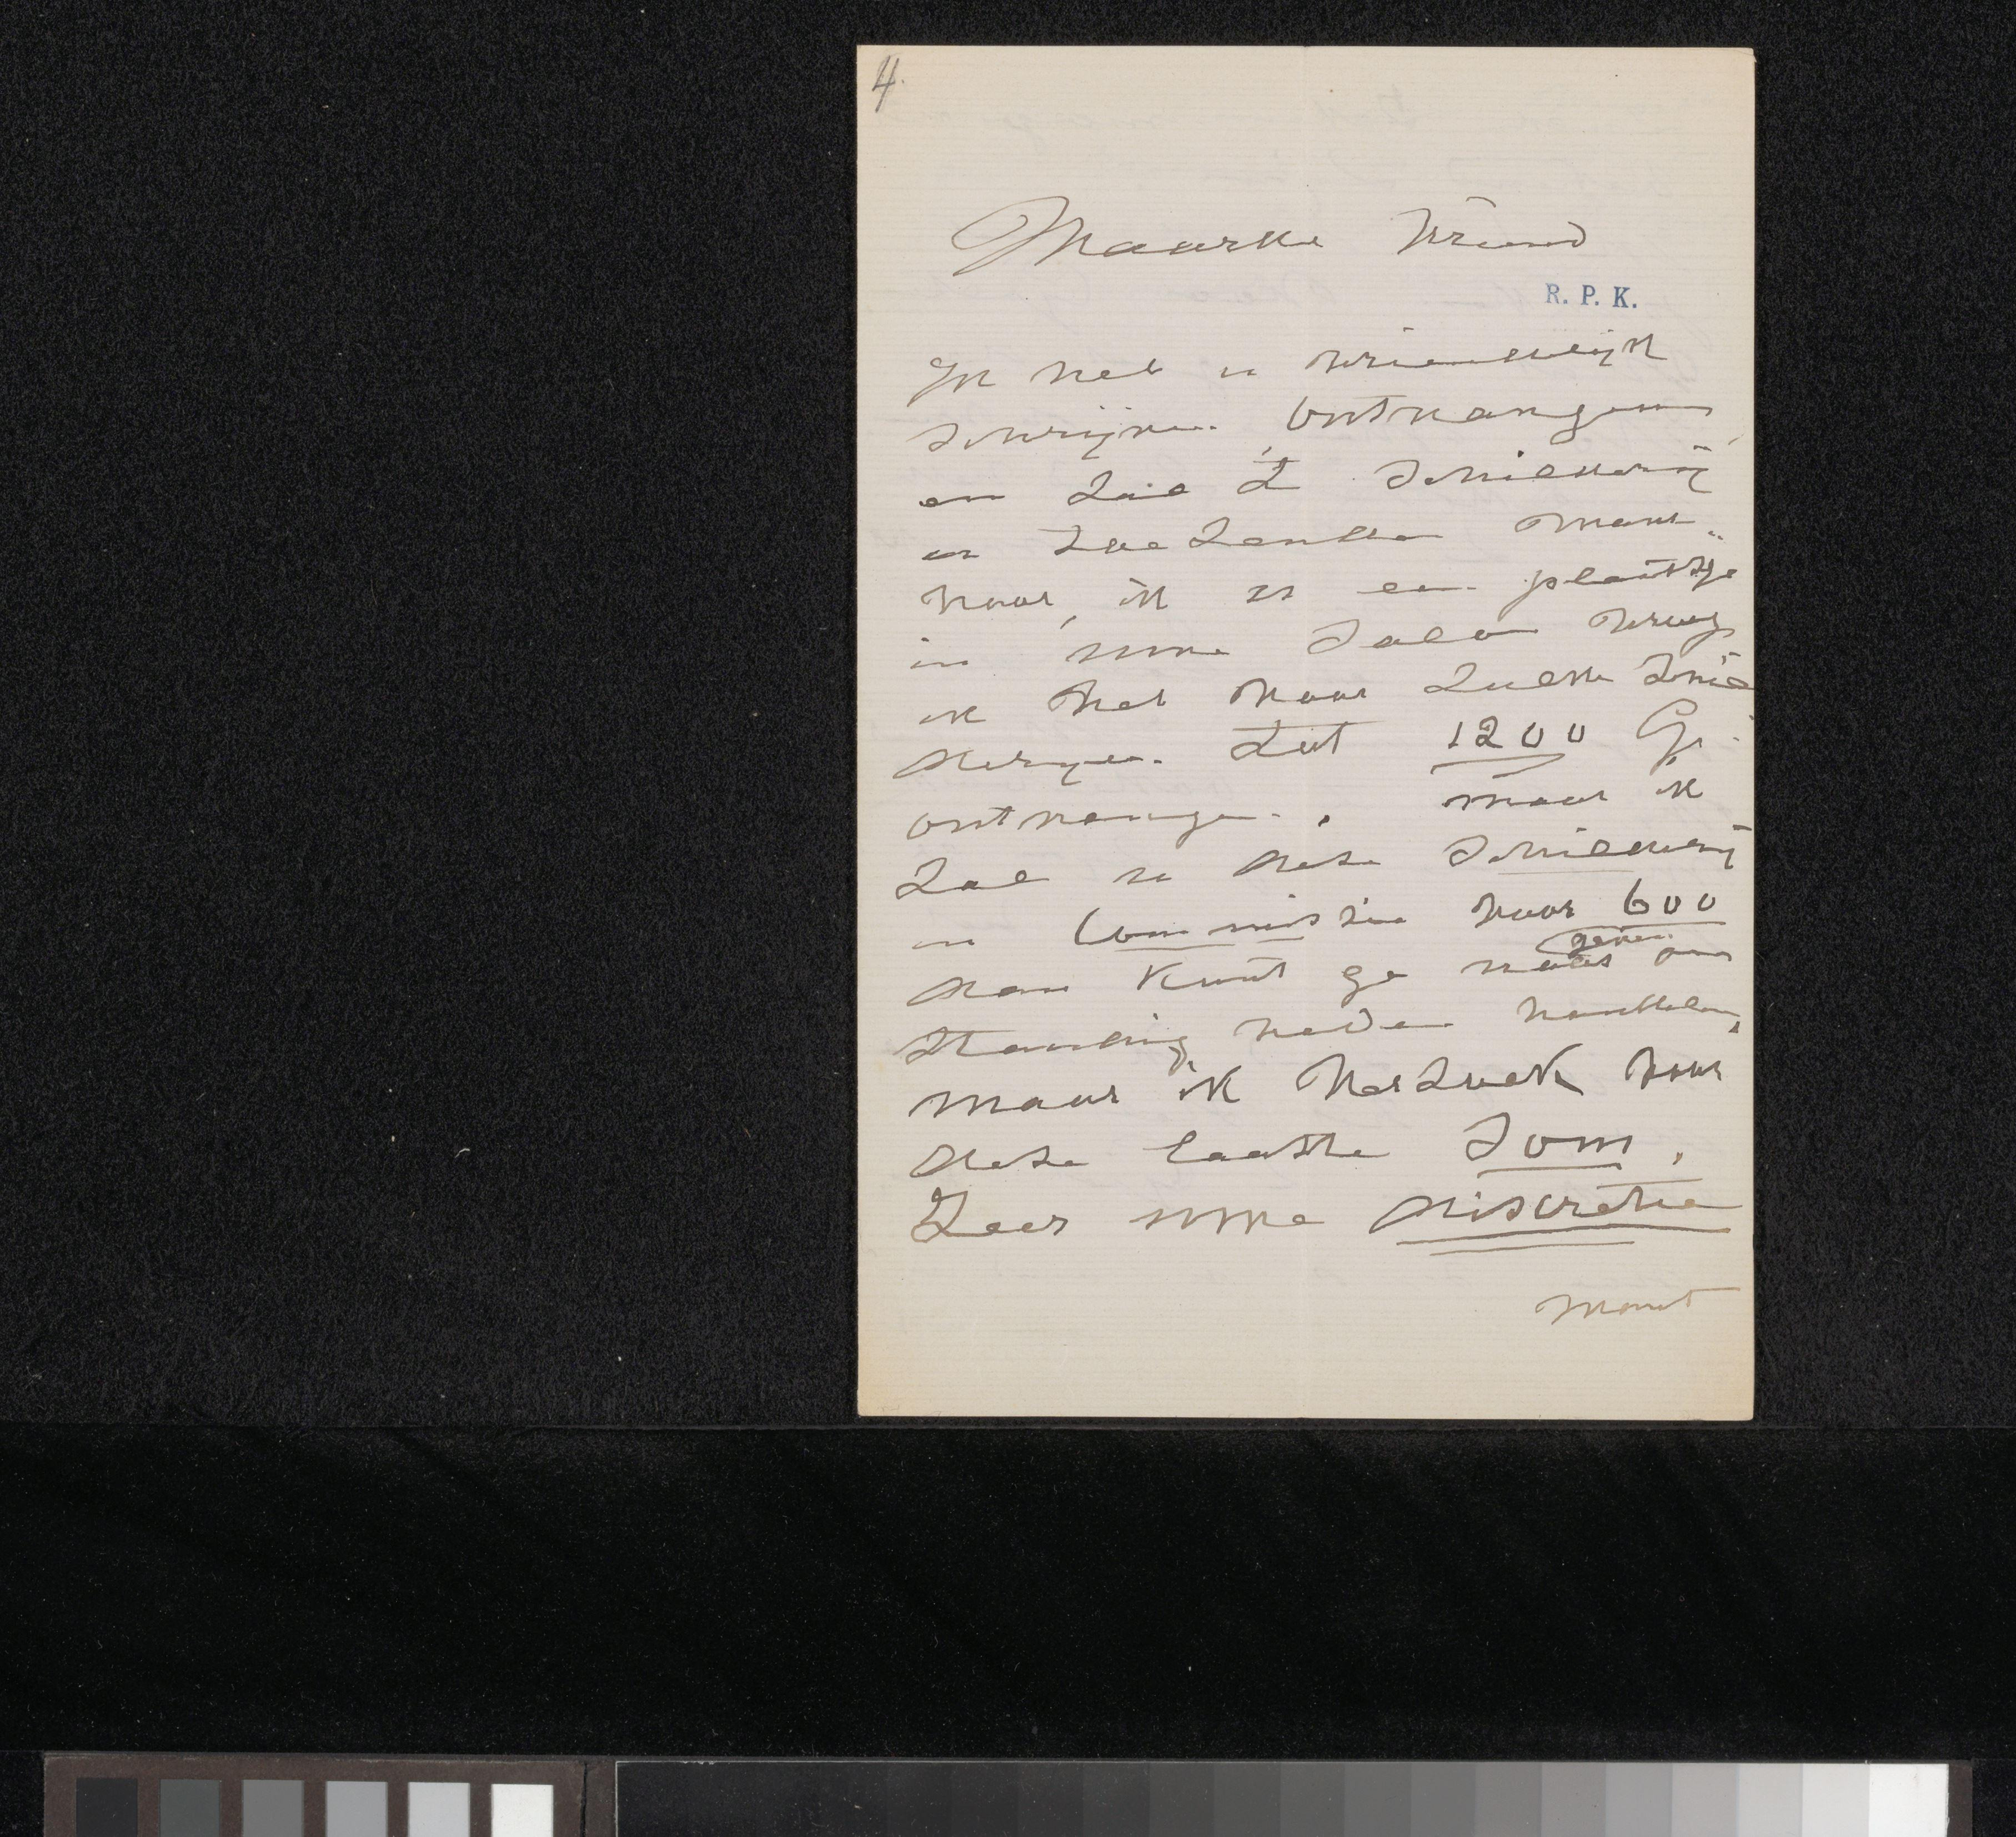 4.
Waarde Vriend
R. P. K.
Ik heb u vriendelijk
schrijven ontvangen,
en zal 't schilderij
u toezenden maar
voor ik er een plaatsje
in uwe salon vroeg
ik heb voor zulke schil
derijen tot 1200 G.
ontvangen. maar ik
zal u deze schilderij
in Commissie voor 600
geven
dan kunt ge naar om
standigheden handelen,
maar ik verzoek voor
deze laatste som,
zeer uwe discretie
want